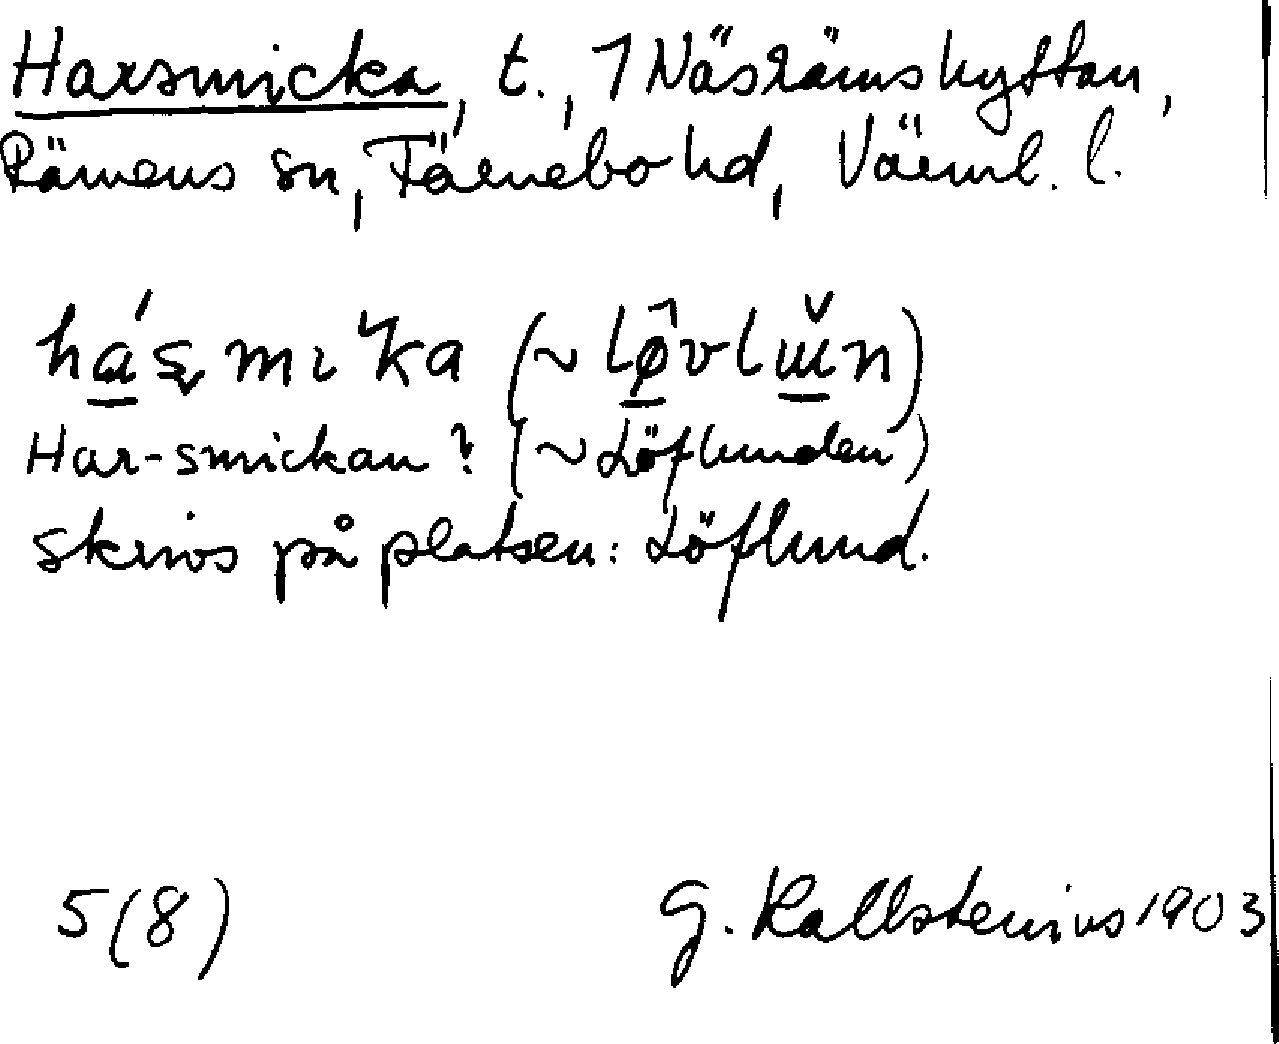 Harsmicka, t., 1 Näsrämshyttan,
Rämens sn, Färnebo hd, Värml. l.
Har-smickan? (~ Löflunden)
skrivs på platsen: Löflund.
5(8) G. Kallstenius 1903